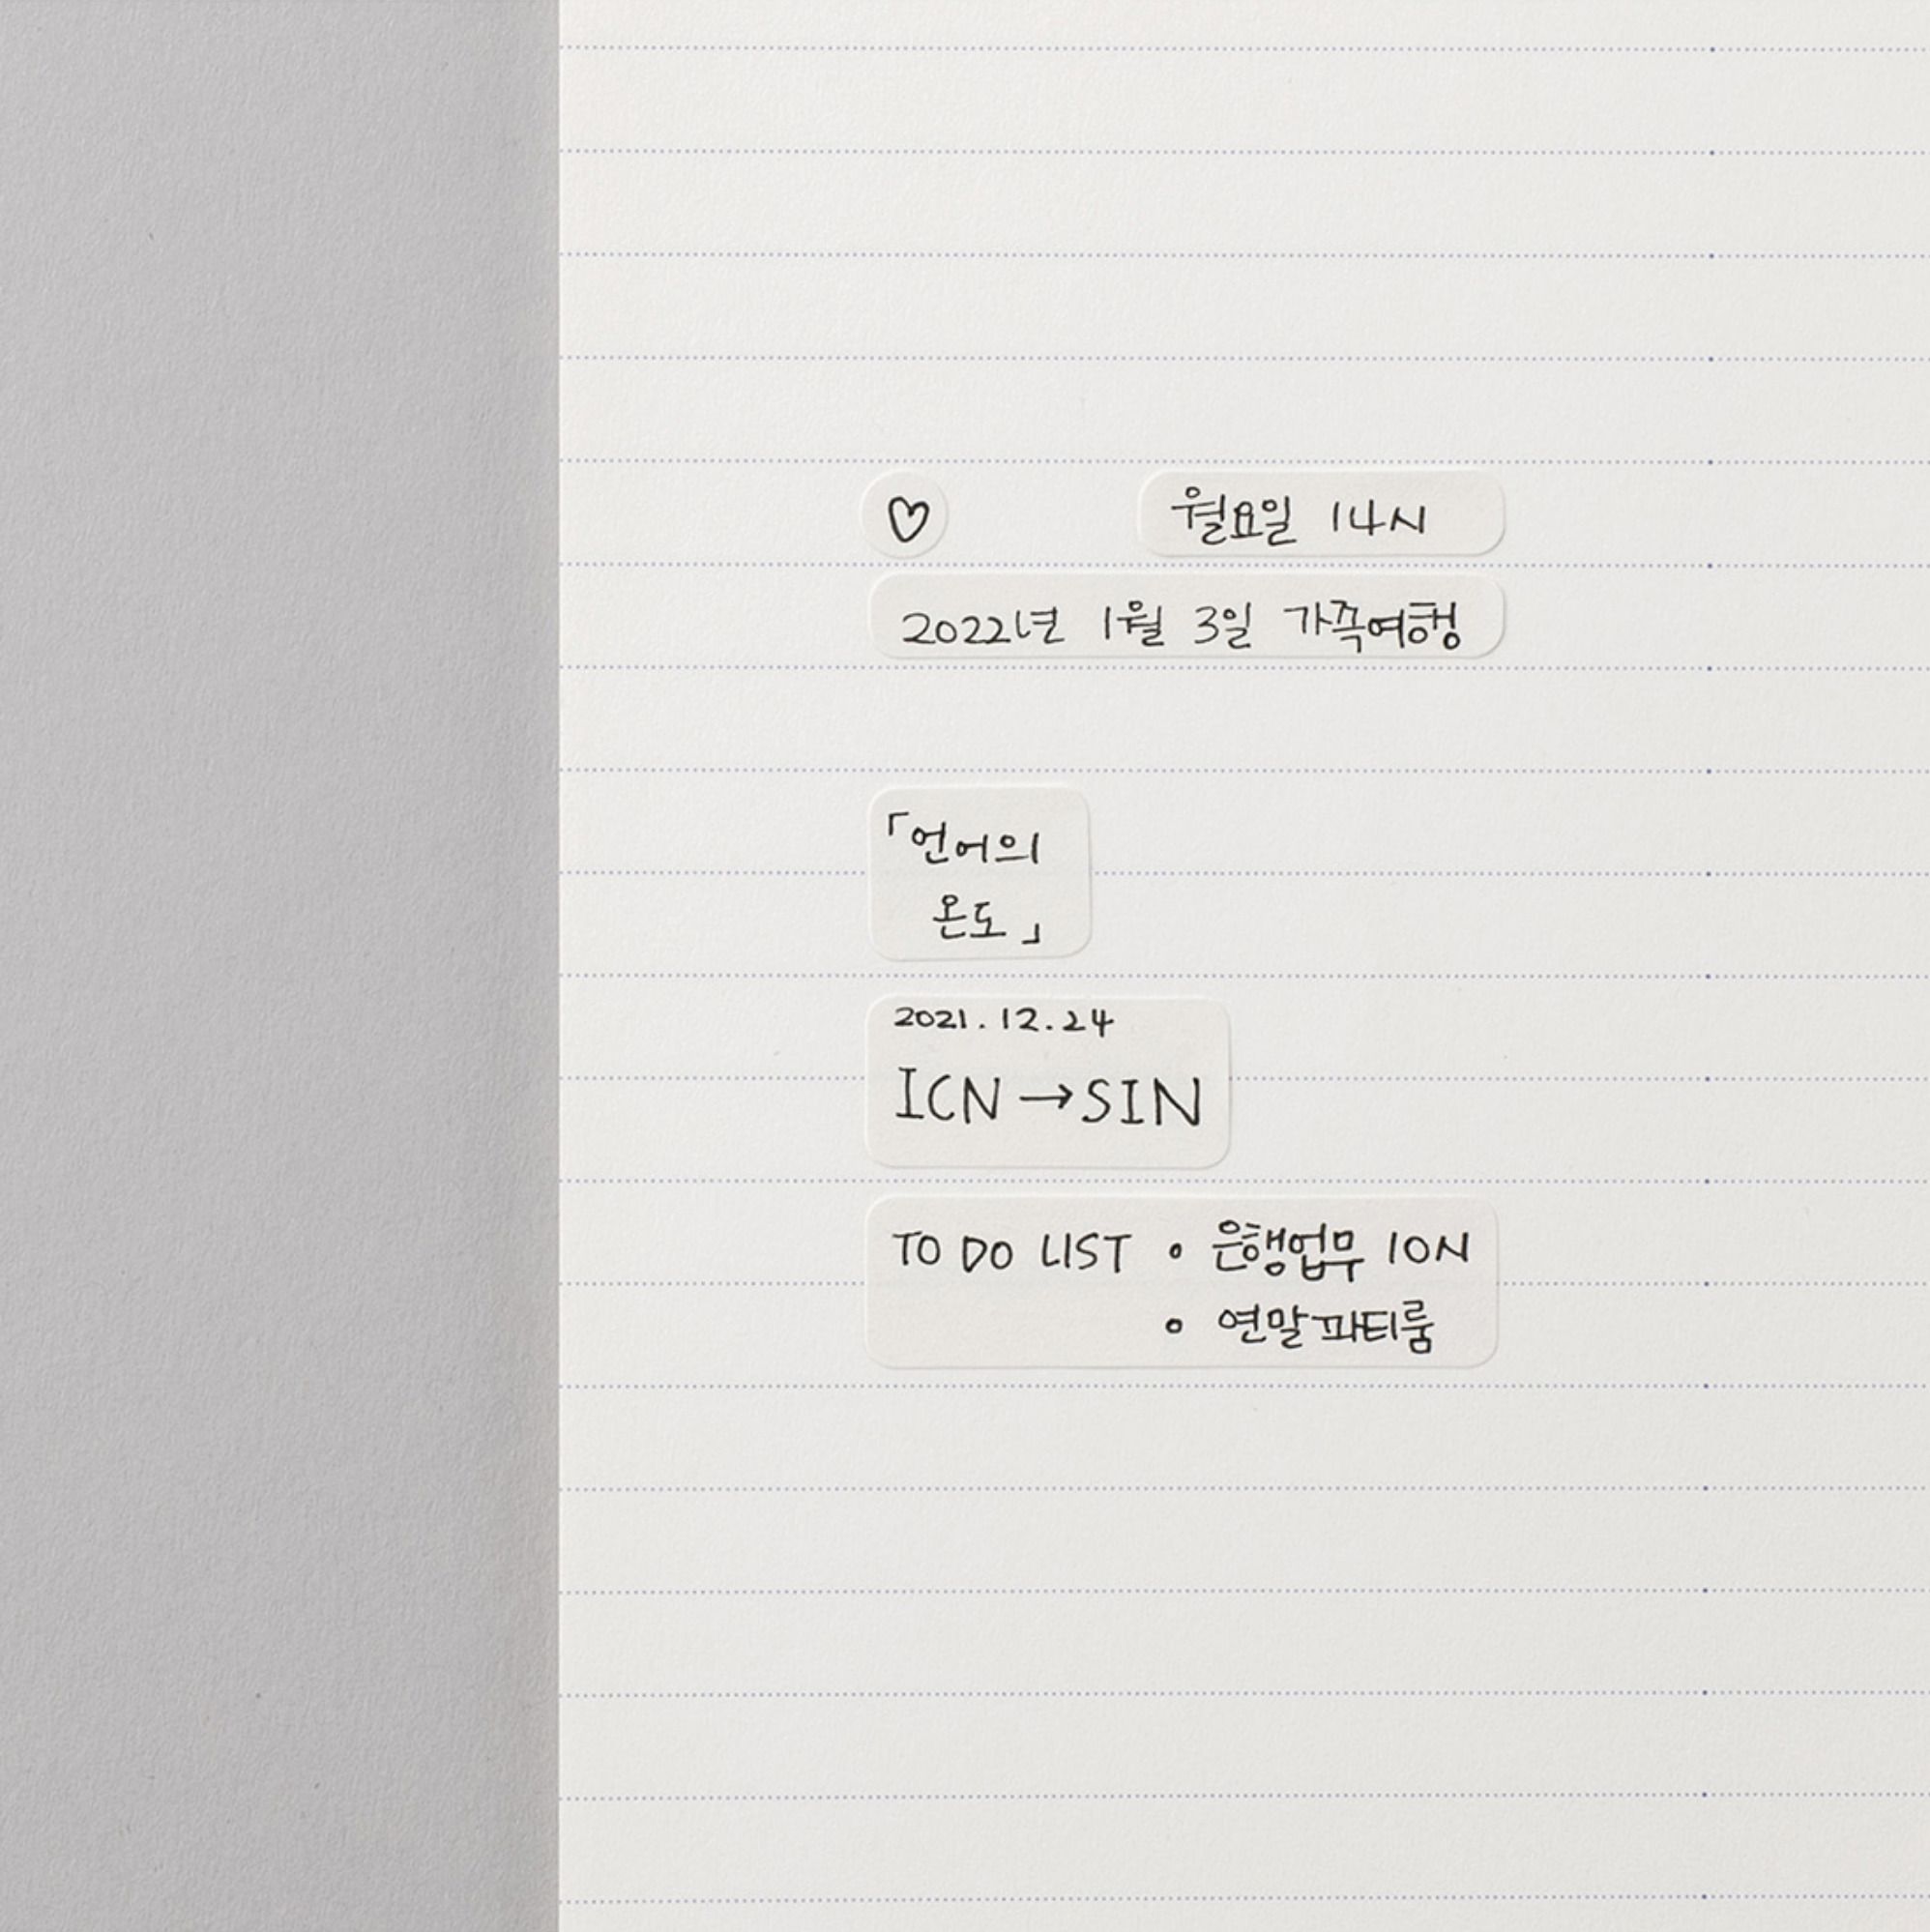 ♡ 월요일 14시
2022년 1월 3일 가족여행
「언어의
온도」
2021.12.24
ICN→SIN
TO DO LIST • 은행업무 10시
• 연말파티룸